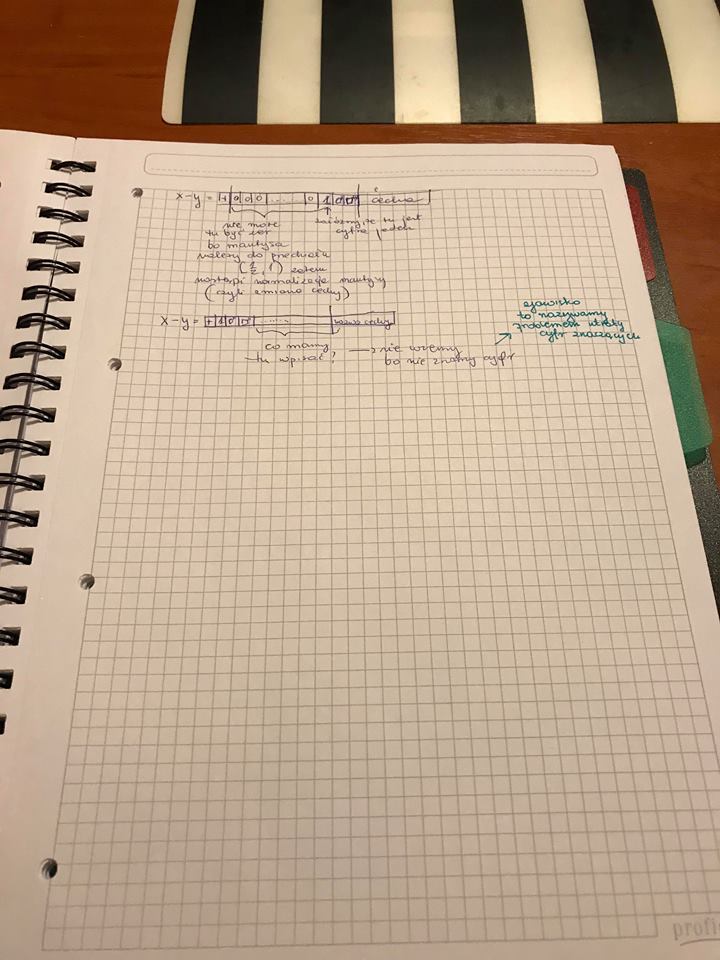 x-y = + 0 0 0 ...... 0 1 0 0 cecha
nie może
tu być zer
bo mantysa
należy do przedziału
(1/2, 1) zatem
nastąpi normalizacja mantysy
(czyli zmiana cechy)
załóżmy, że tu jest
cyfra jeden
x-y = + 1 0 0 ..... nowa cechy
co mamy
tu wpisać? → nie wiemy
bo nie znamy cyfr
zjawisko
to nazywamy
problemem utraty
cyfr znaczących